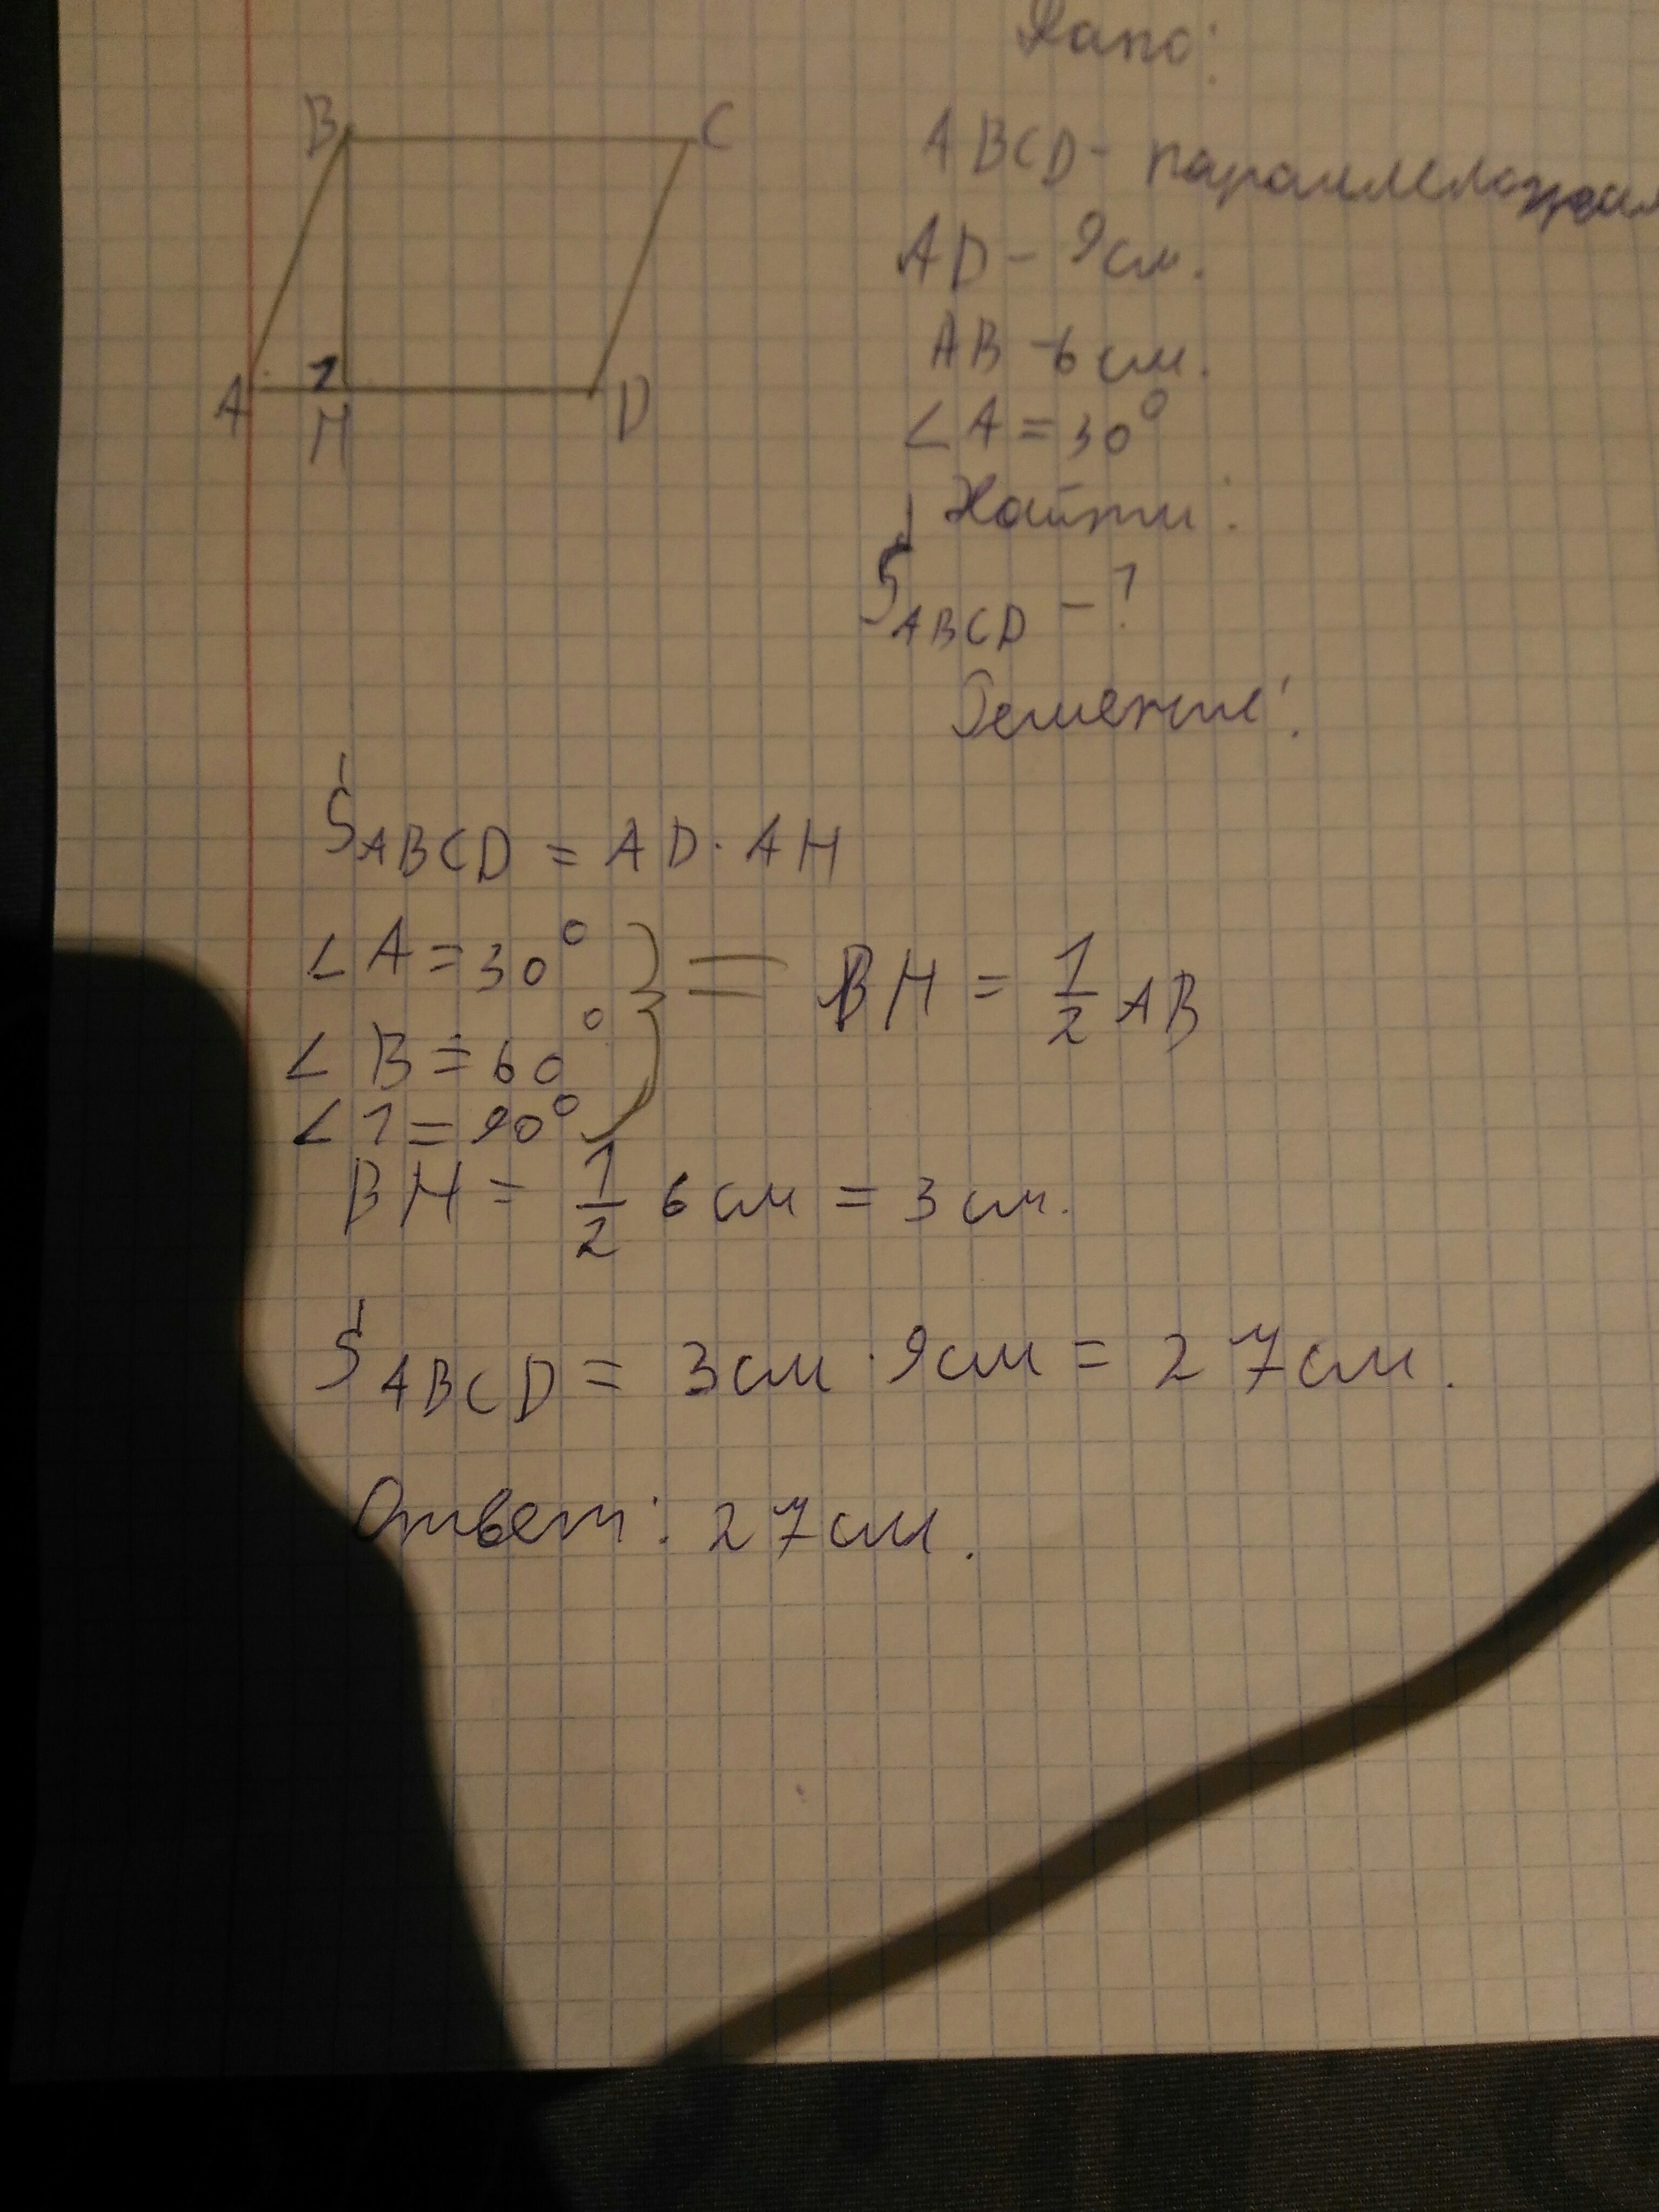 Дано:
B C
A H D
1
ABCD - параллелограм
AD - 9 см.
AB - 6 см.
∠A = 30°
Найти:
S ABCD - ?
Решение:
S ABCD = AD · AH
∠A = 30°
∠B = 60° } = BH = 1/2 AB
∠1 = 90°
BH = 1/2 6 см = 3 см.
S ABCD = 3 см · 9 см = 27 см.
Ответ: 27 см.